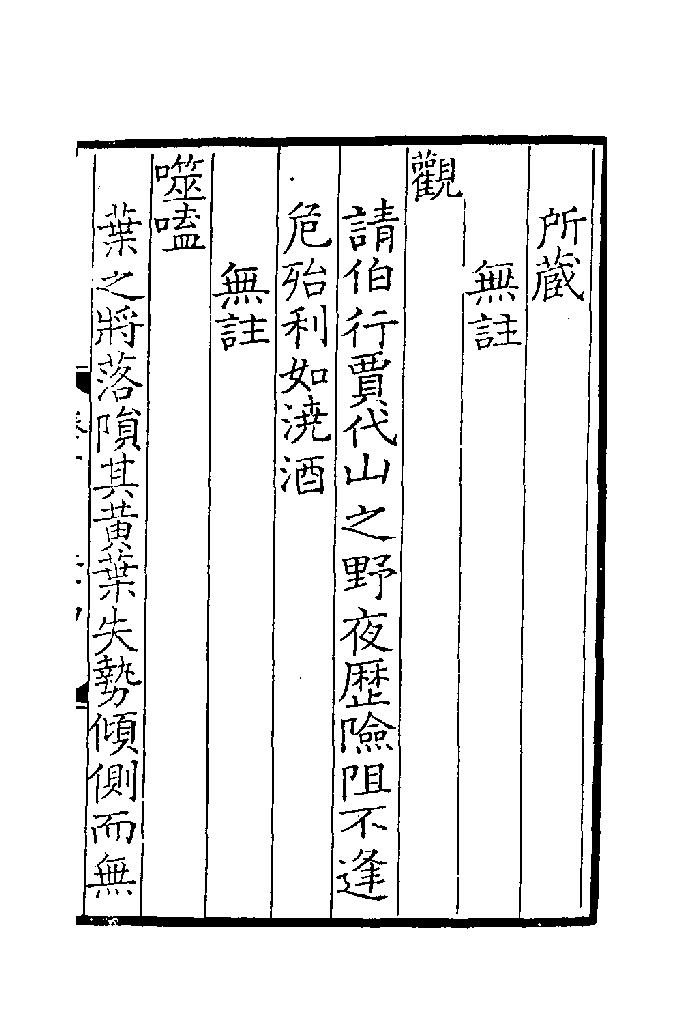 所蔵
無註
觀
請伯行賈代山之野夜歴險阻不逢
危殆利如澆酒
無註
噬嗑
葉之將落隕其黄葉失勢傾側而無